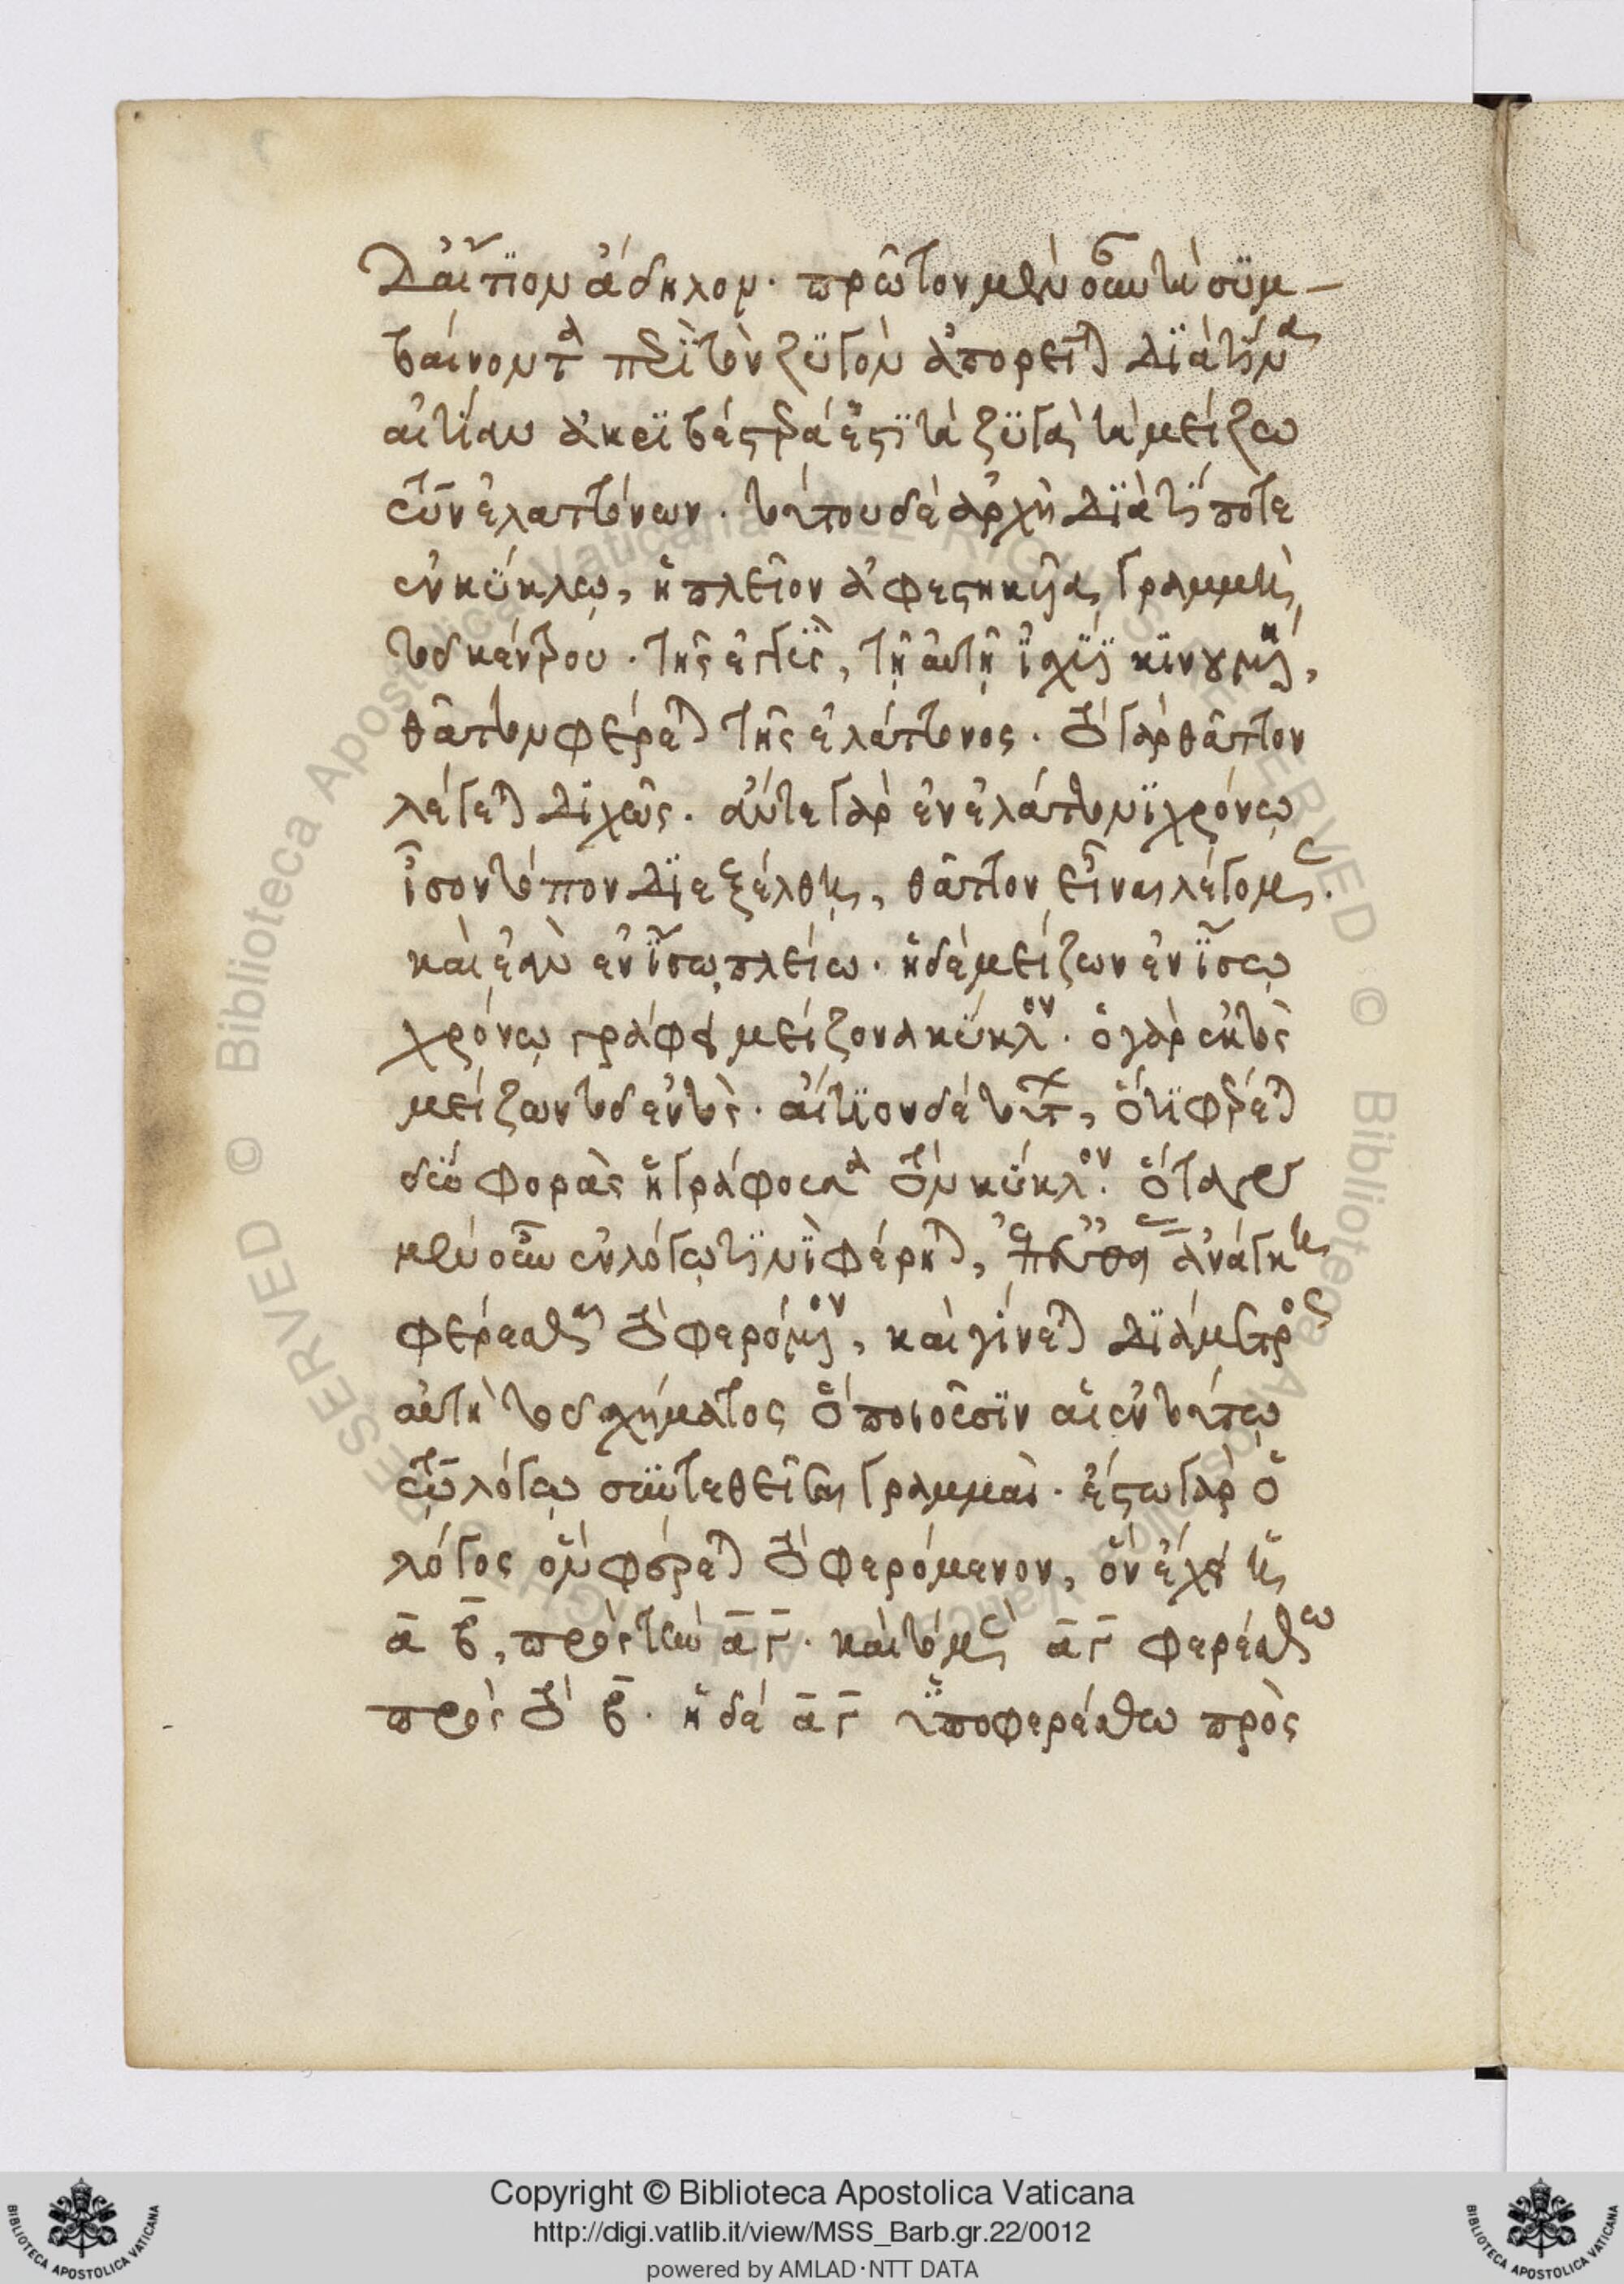 δ' αἴτιον ἄδηλον. πρῶτον μὲν οὖν τὰ συμ-
βαίνοντα περὶ τὸν ζυγὸν ἀπορεῖται διὰ τίνα
αἰτίαν ἀκριβέστερά ἐστι τὰ ζυγὰ τὰ μείζω
τῶν ἐλαττόνων. τούτου δὲ ἀρχὴ διὰ τί ποτε
ἐν κύκλῳ, ἡ πλεῖον ἀφεστηκυῖα γραμμὴ
τοῦ κέντρου. τῆς ἐγγὺς, τῇ αὐτῇ ἰσχύϊ κινουμένη,
θᾶττον φέρεται τῆς ἐλάττονος. τὸ γὰρ θᾶττον
λέγεται διχῶς. ἄν τε γὰρ ἐν ἐλάττονι χρόνῳ
ἴσον τόπον διεξέλθῃ, θᾶττον εἶναι λέγομεν.
καὶ ἐὰν ἐν ἴσῳ πλείω. ἡ δὲ μείζων ἐν ἴσῳ
χρόνῳ γράφει μείζονα κύκλον. ὁ γὰρ ἐκτὸς
μείζων τοῦ ἐντός. αἴτιον δὲ τούτων, ὅτι φέρεται
δύο φορὰς ἡ γράφουσα τὸν κύκλον. ὅταν
μὲν οὖν ἐν λόγῳ τινὶ φέρηται, ἐπ' εὐθείας ἀνάγκη
φέρεσθαι τὸ φερόμενον, καὶ γίνεται διάμετρος
αὐτὴ τοῦ σχήματος ὃ ποιοῦσιν αἱ ἐν τούτῳ
τῷ λόγῳ συντεθεῖσαι γραμμαί. ἔστω γὰρ ὁ
λόγος ὃν φέρεται τὸ φερόμενον, ὃν ἔχει ἡ
α β, πρὸς τὴν α γ. καὶ τὸ μὲν α γ φερέσθω
πρὸς τὸ β. ἡ δὲ α γ ὑποφερέσθω πρὸς
Copyright © Biblioteca Apostolica Vaticana
http://digi.vatlib.it/view/MSS_Barb.gr.22/0012
powered by AMLAD·NTT DATA